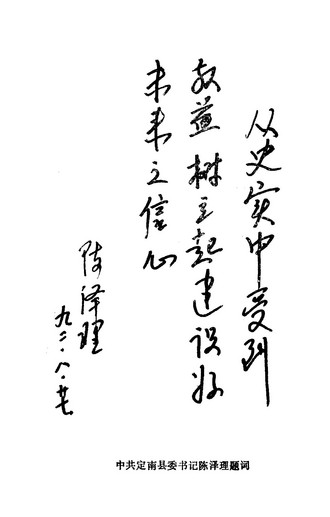 从史实中受到
教益树立起建设好
未来之信心
陈泽理
九二.八.廿
中共定南县委书记陈泽理题词